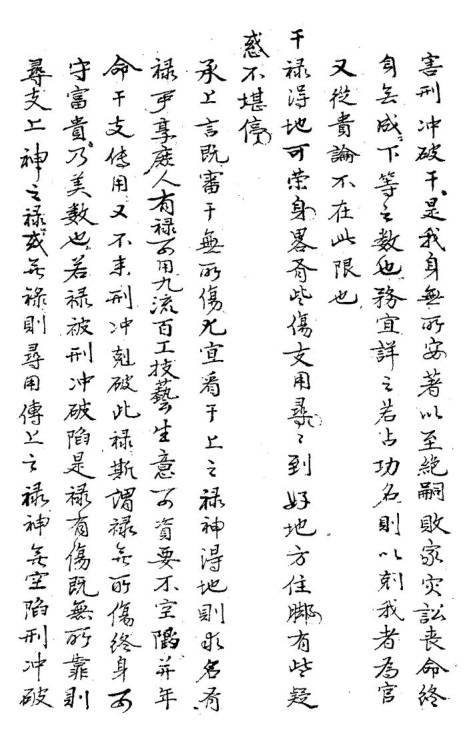 害刑冲破干是我身無所安著以至絶嗣敗家灾訟喪命終
身無成下等之数也務宜詳之若占功名則以剋我者為官
又從貴論不在此限也
干禄得地可荣身畧有些傷支用尋〻到好地方住脚有些疑
惑不堪停
承上言既審干無所傷尤宜看干上之禄神得地則求名有
禄爭享庭人有禄可用九流百工技藝生意可資要不空陷并年
命干支傳用又不来刑冲剋破此禄斯謂禄無所傷終身可
守富貴乃美数也若禄被刑冲破陷是禄有傷既無所靠則
尋支上神之禄或無禄則尋用傳上之禄神無空陷刑冲破